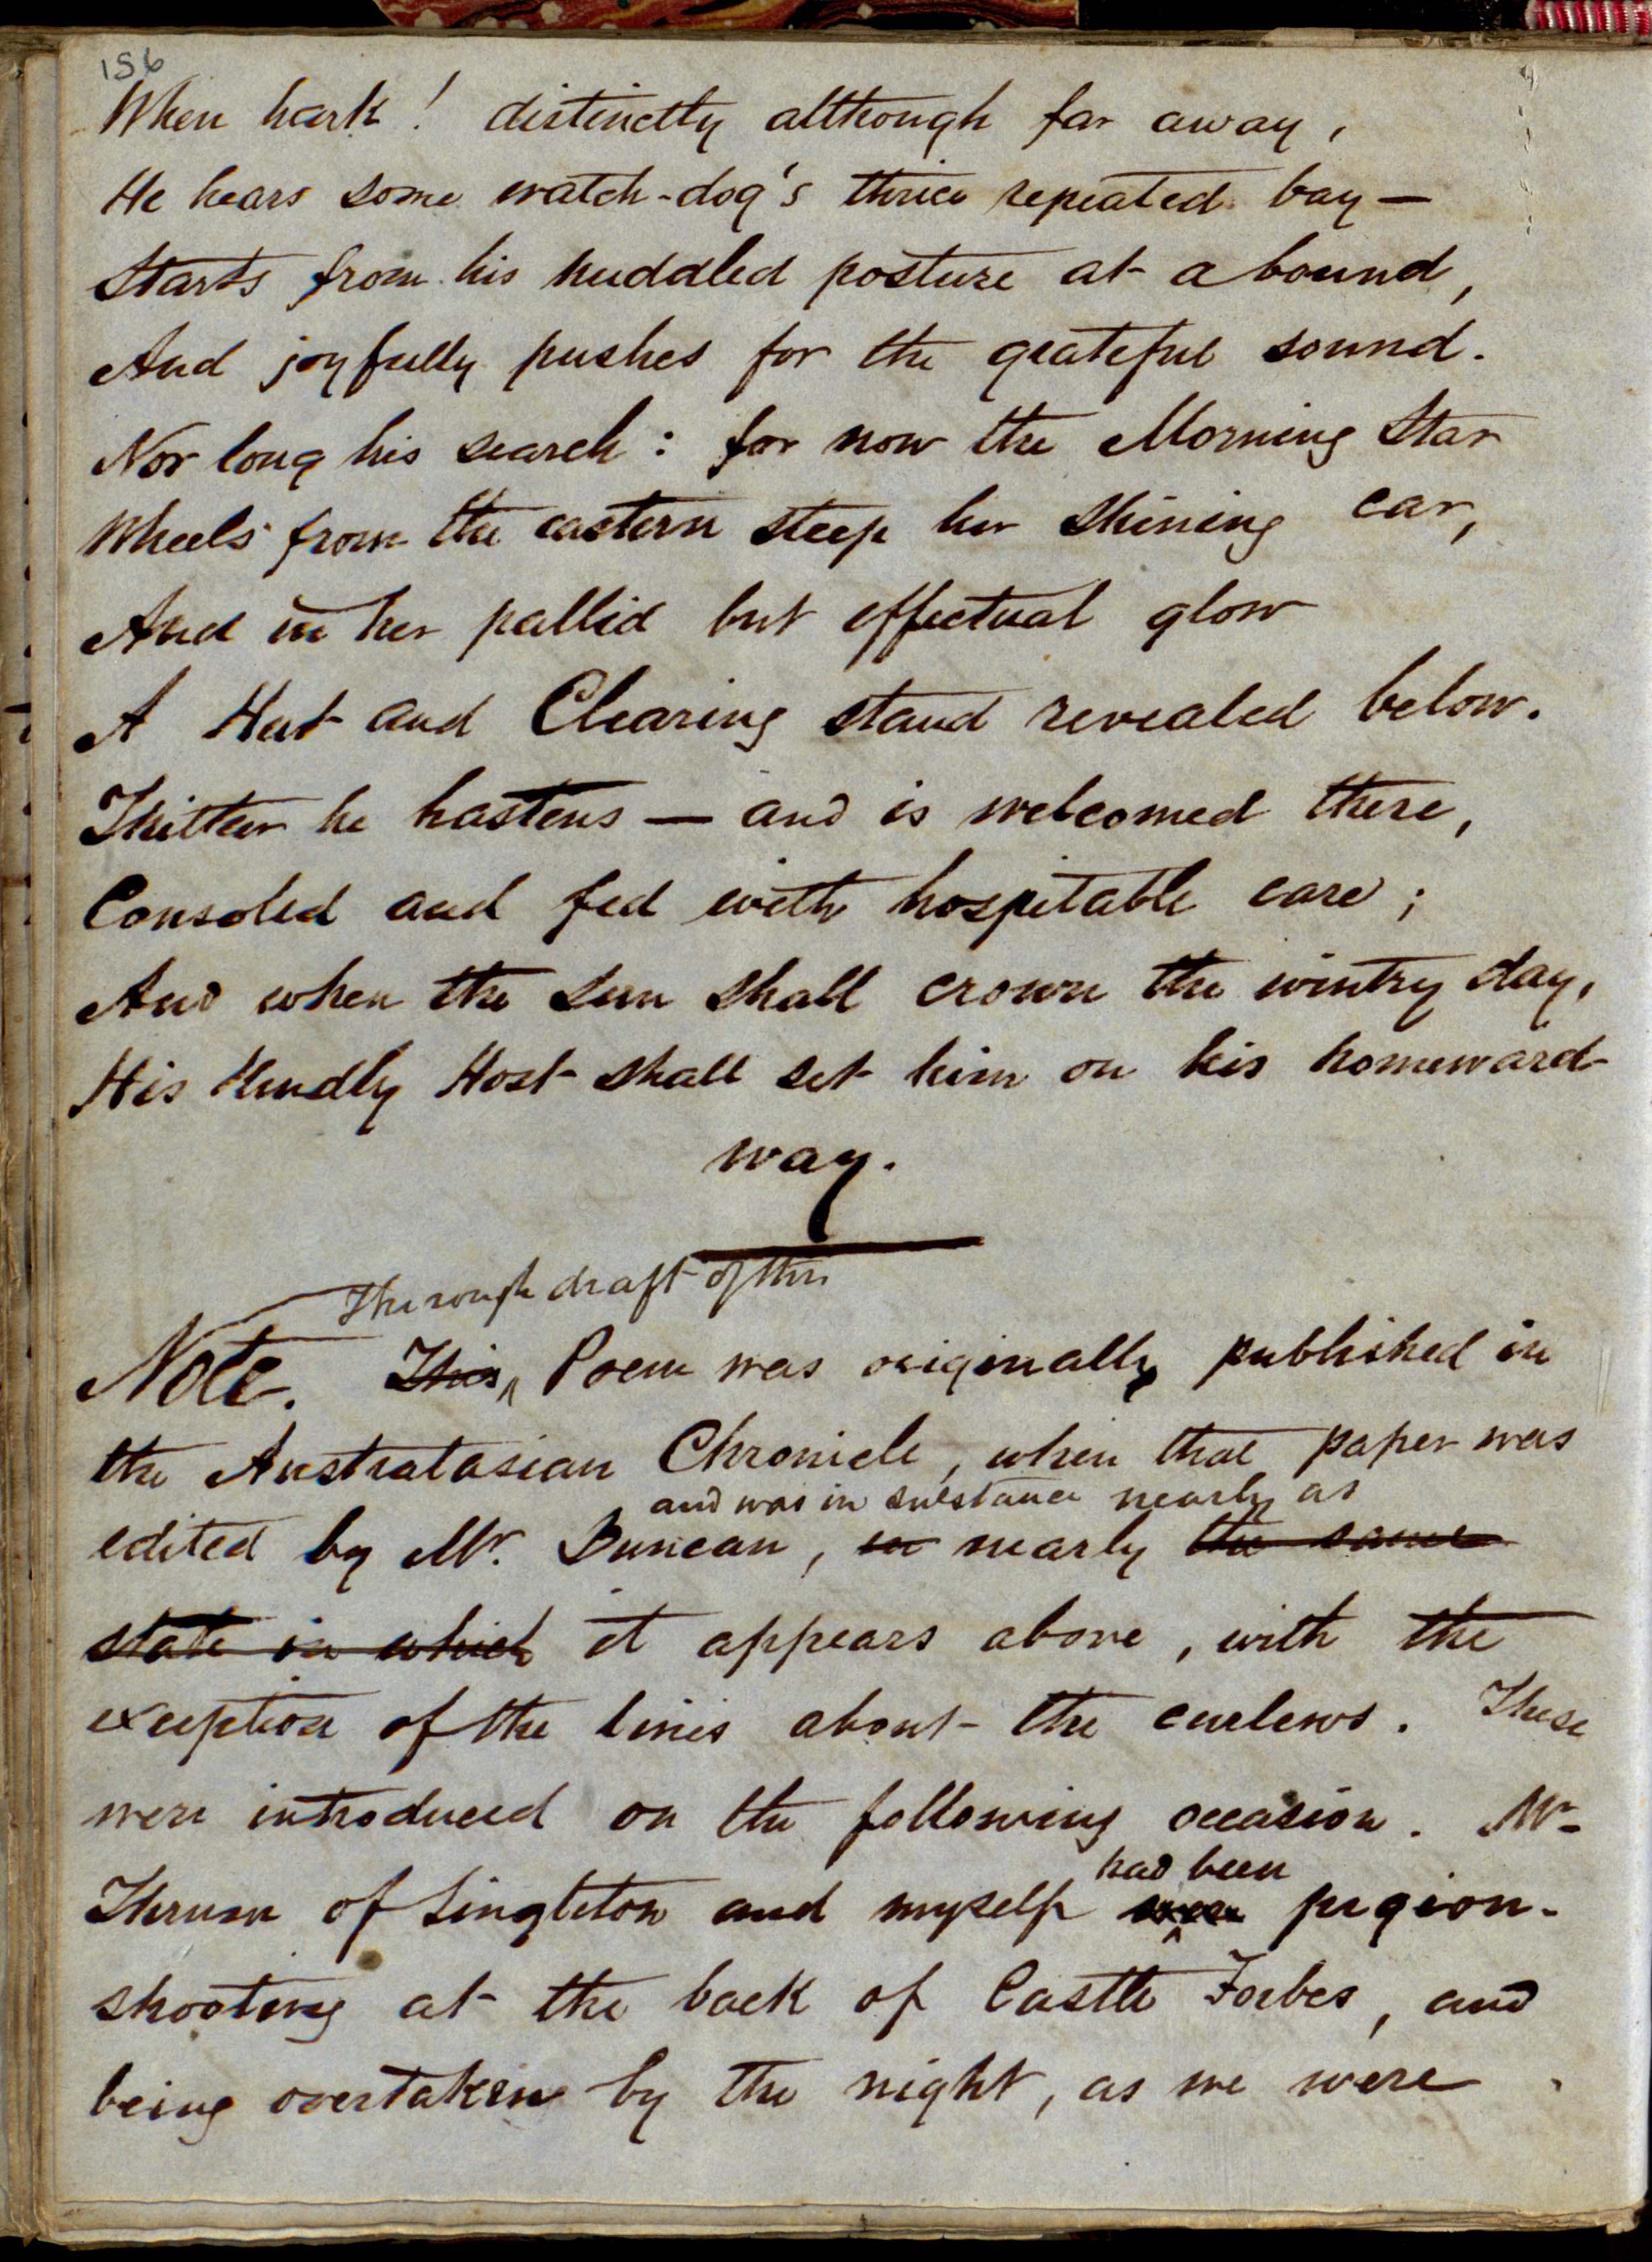 156
When hark! distinctly although far away,
He hears some watch-dog's thrice repeated bay—
Starts from his huddled posture at a bound,
And joyfully pushes for the grateful sound.
Nor long his search: for now the Morning Star
Wheels from the eastern steep her shining car,
And in her pallid but effectual glow
A Hut and Clearing stand revealed below.
Thither he hastens — and is welcomed there,
Consoled and fed with hospitable care;
And when the sun shall crown the wintry day,
His kindly Host shall set him on his homeward
way.
The rough draft of this
Note. This Poem was originally published in
the Australasian Chronicle, when that paper was
and was in substance nearly as
edited by Mr. Duncan, in nearly the same
state in which it appears above, with the
exception of the lines about the curlews. These
were introduced on the following occasion. Mr
had been
Thrum of Singleton and myself were pigeon-
shooting at the back of Castle Forbes, and
being overtaken by the night, as we were